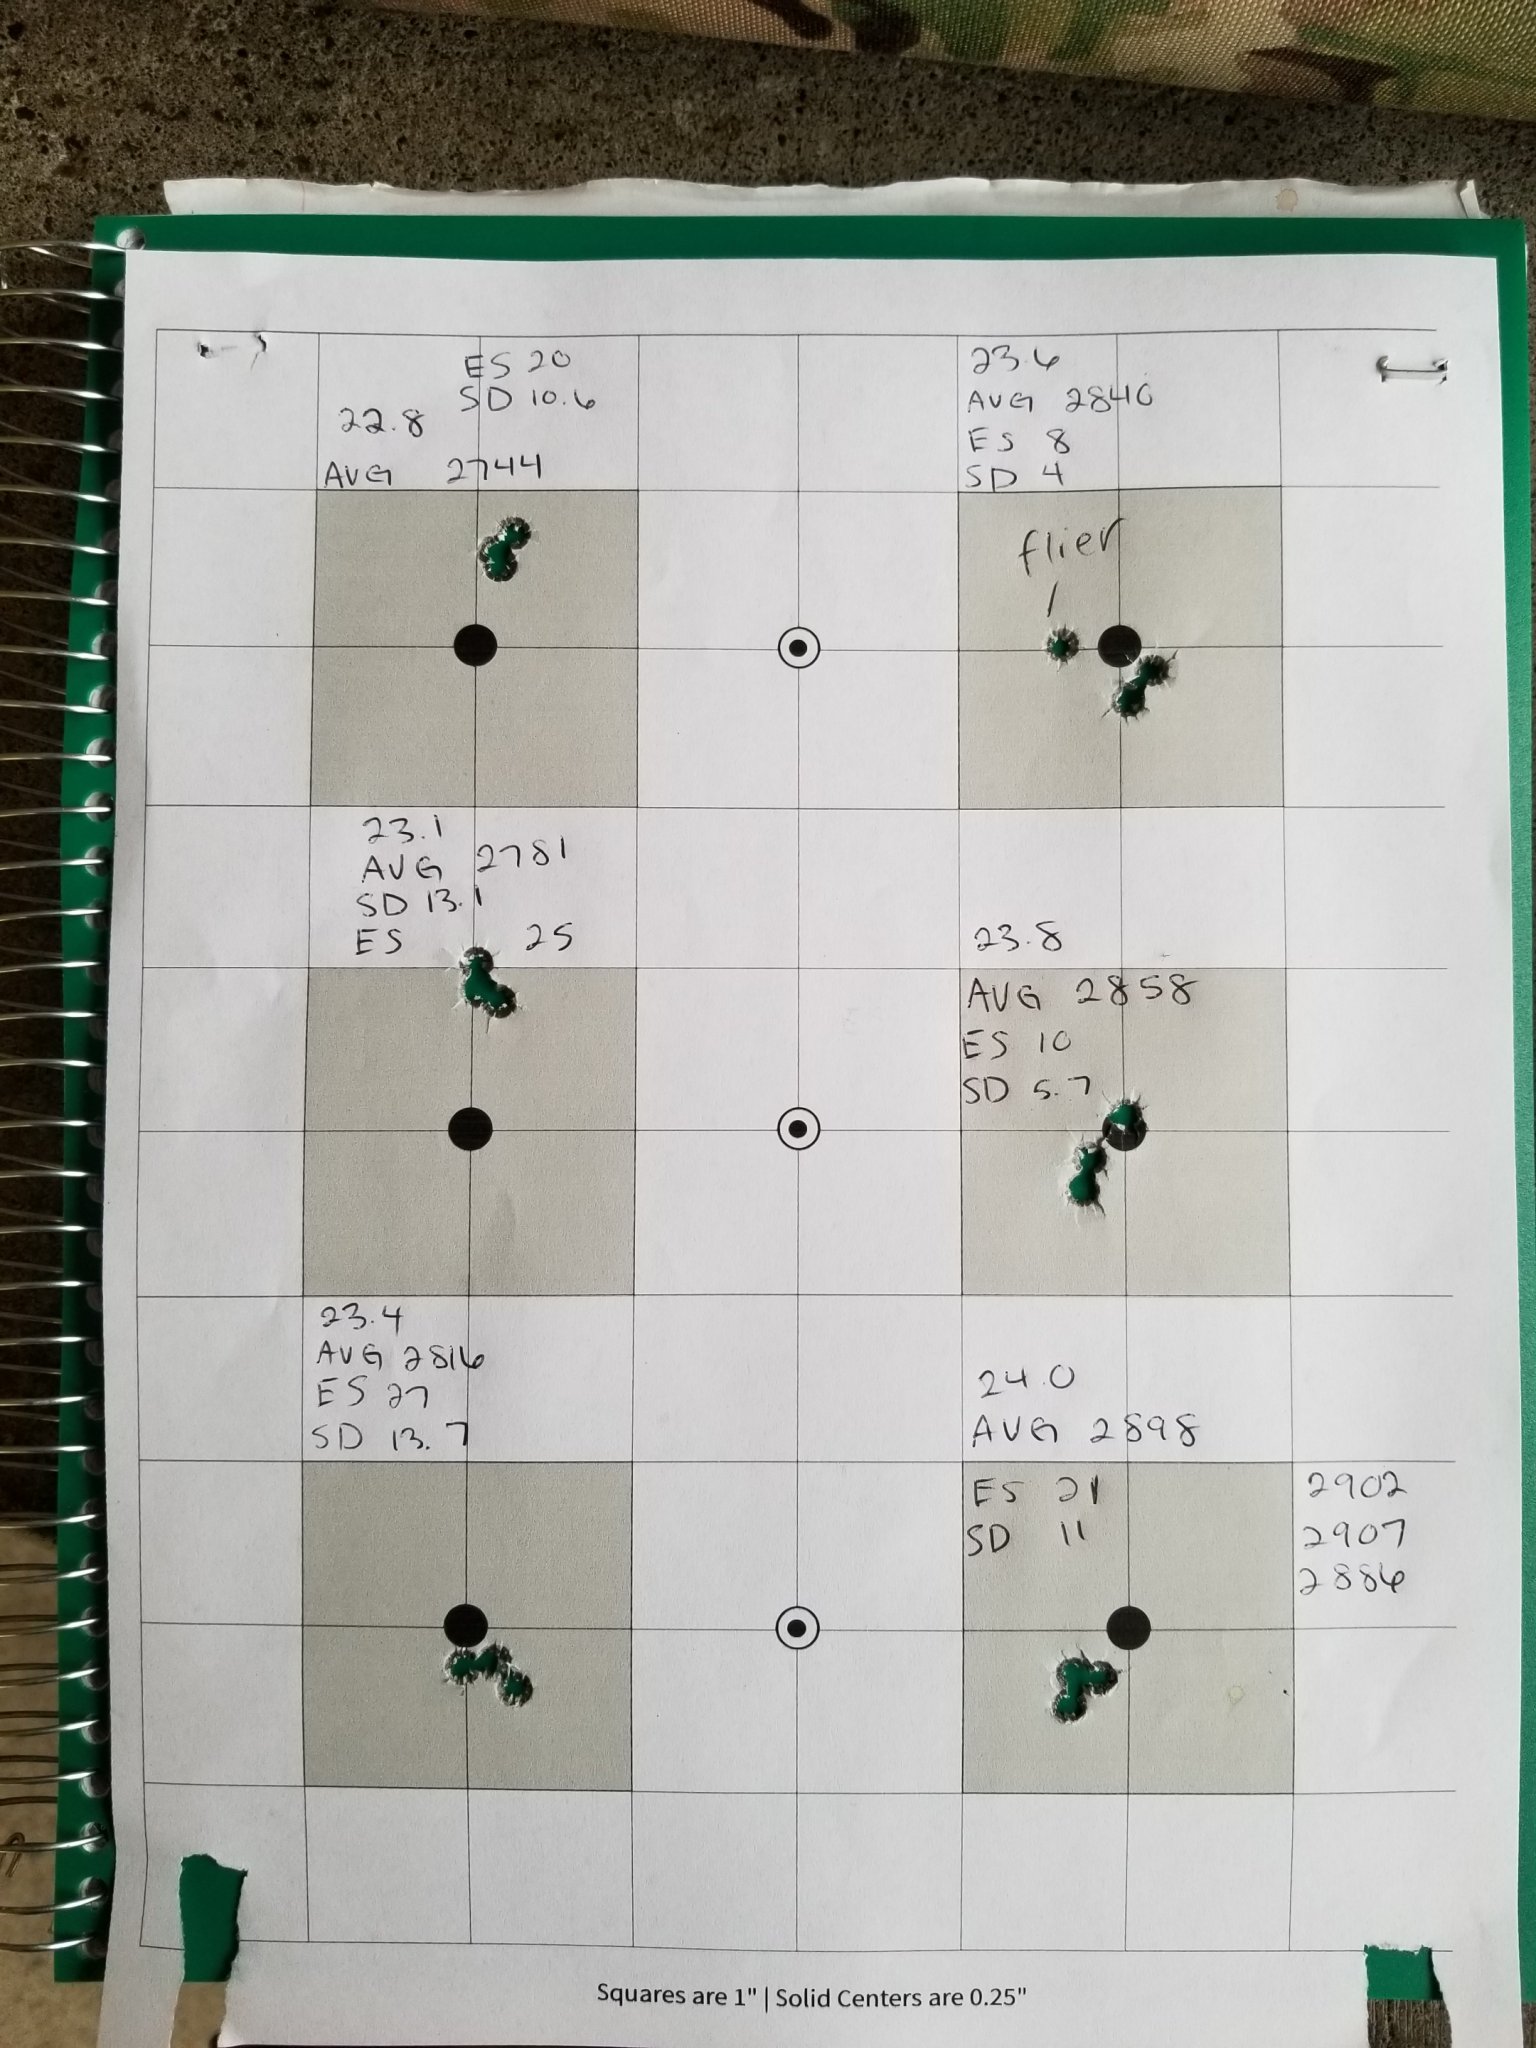 ES 20
SD 10.6
22.8
AVG 2744
23.6
AVG 2840
ES 8
SD 4
flier
23.1
AVG 2781
SD 13.1
ES 25
23.8
AVG 2858
ES 10
SD 5.7
23.4
AVG 2816
ES 27
SD 13.7
24.0
AVG 2898
ES 21
SD 11
2902
2907
2886
Squares are 1" | Solid Centers are 0.25"